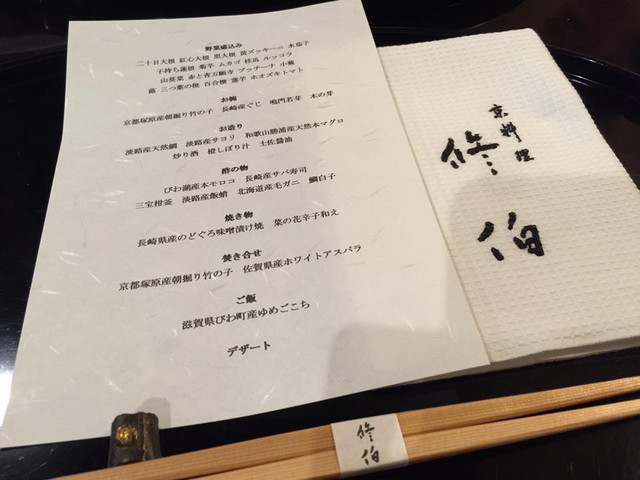 野菜盛込み
二十日大根 紅心大根 黒大根 黄ズッキーニ 水茄子
子持ち蓮根 菊芋 ムカゴ 桂瓜 ルッコラ
山葵菜 赤と青万願寺 プッチーナ 小蕪
蕗 三つ葉の根 百合根 蓮芋 ホオズキトマト
お椀
京都塚原産朝掘り竹の子 長崎産ぐじ 鳴門若芽 木の芽
お造り
淡路産天然鯛 淡路産サヨリ 和歌山勝浦産天然本マグロ
炒り酒 橙しぼり汁 土佐醤油
酢の物
びわ湖産本モロコ 長崎産サバ寿司
三宝柑釜 淡路産飯蛸 北海道産毛ガニ 鯛白子
焼き物
長崎県産のどぐろ味噌漬け焼 菜の花辛子和え
焚き合せ
京都塚原産朝掘り竹の子 佐賀県産ホワイトアスパラ
ご飯
滋賀県びわ町産ゆめごこち
デザート
京料理
修伯
修伯